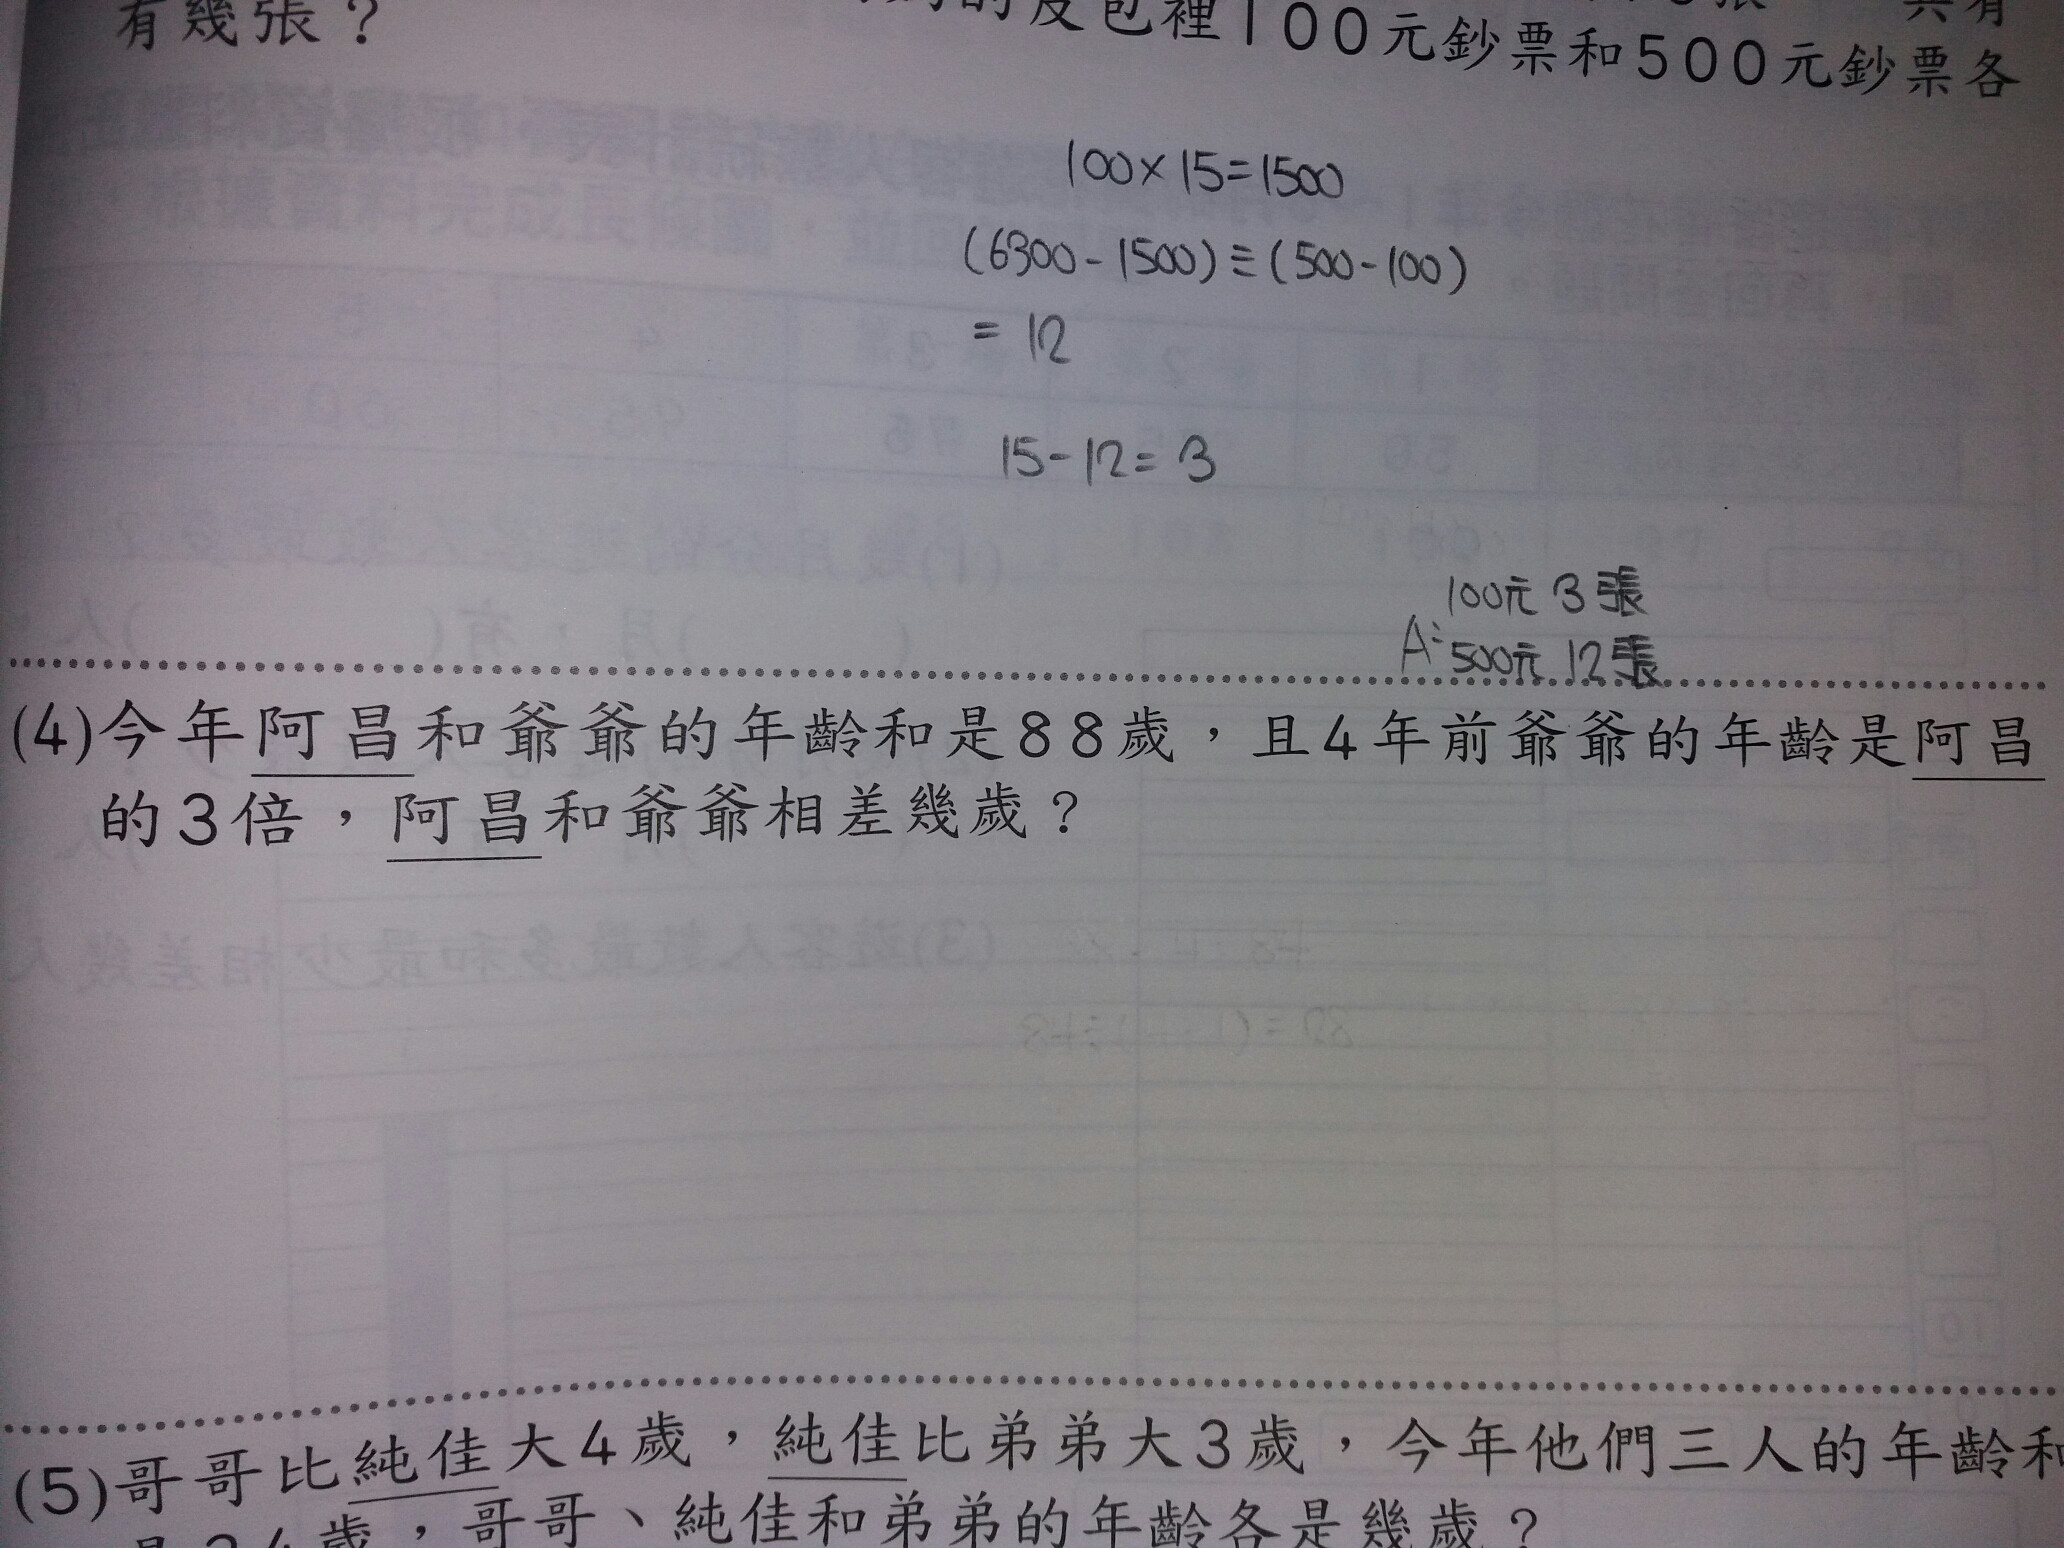 的皮包裡100元鈔票和500元鈔票各
有幾張？
100×15=1500
(6300-1500)÷(500-100)
=12
15-12=3
100元 3張
A: 500元 12張
(4)今年阿昌和爺爺的年齡和是88歲，且4年前爺爺的年齡是阿昌
的3倍，阿昌和爺爺相差幾歲？
(5)哥哥比純佳大4歲，純佳比弟弟大3歲，今年他們三人的年齡和
歲，哥哥、純佳和弟弟的年齡各是幾歲？